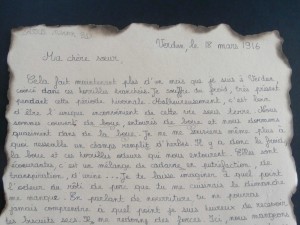 Verdun, le 18 mars 1916
Ma chère sœur,
Cela fait maintenant plus d'un mois que je suis à Verdun
coincé dans ces horribles tranchées. Je souffre du froid, très présent
pendant cette période hivernale. Malheureusement, c'est loin
d'être l'unique inconvénient de cette vie sous terre. Nous
sommes couverts de boue, entourés de boue et nous dormons
quasiment dans de la boue. Je ne me souviens même plus à
quoi ressemble un champs rempli d'herbe. Il y a donc le froid,
la boue et ces horribles odeurs qui nous entourent. Elles sont
écœurantes, c'est un mélange de cadavre, de putréfaction, de
transpiration, d'urine... Je te laisse imaginer à quel point
l'odeur du rôti de porc que tu me cuisinais le dimanche
me manque. En parlant de nourriture, tu ne pourras
jamais comprendre à quel point je suis heureux de recevoir
tes biscuits secs. Ils me redonnent des forces. Ici, nous mangeons